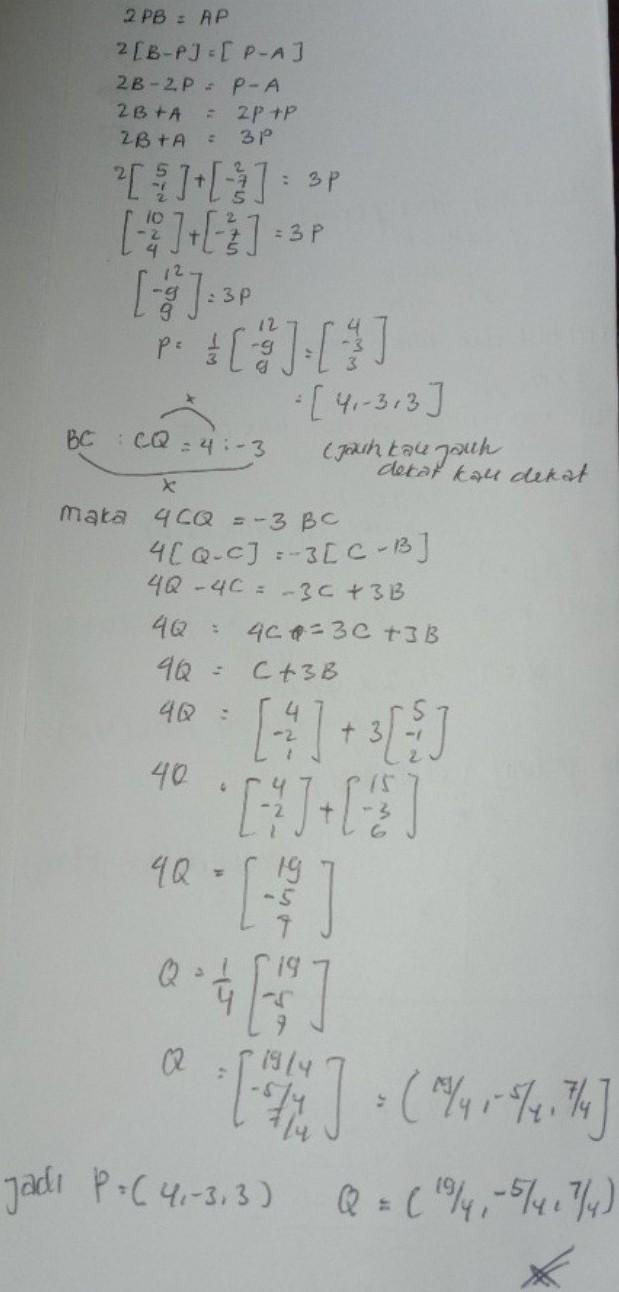 2PB = AP
2[B-P] = [P-A]
2B-2P = P-A
2B+A = 2P+P
2B+A = 3P
2[5 -1 2] + [2 -7 5] = 3P
[10 -2 4] + [2 -7 5] = 3P
[12 -9 9] = 3P
P = 1/3 [12 -9 9] = [4 -3 3]
= [4,-3,3]
x
BC : CQ = 4 : -3 (jauh kali jauh
dekat kali dekat
x
maka 4CQ = -3 BC
4[Q-C] = -3[C-B]
4Q - 4C = -3C + 3B
4Q = 4C = 3C + 3B
4Q = C + 3B
4Q = [4 -2 1] + 3[5 -1 2]
4Q = [4 -2 1] + [15 -3 6]
4Q = [19 -5 7]
Q = 1/4 [19 -5 7]
Q = [19/4 -5/4 7/4] = (19/4, -5/4, 7/4]
Jadi P = (4,-3,3) Q = (19/4, -5/4, 7/4)